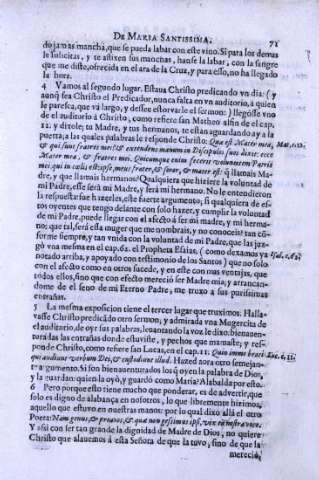 DE MARIA SANTISSIMA. 71
do jamas mancha, que se pueda labar con este vino. Si para los demas
le solicitas, y te afligen sus manchas, hanse la labar, con la sangre
que me diste, ofrecida en el ara de la Cruz, y para esso, no ha llegado
la hora.
4 Vamos al segundo lugar. Estaua Christo predicando vn dia: (y
aunq̃ sea Christo el Predicador, nunca falta en vn auditorio, à quien
le paresca, que và largo, y dessee estorvarle el sermon:) llegósse vno
de el auditorio à Christo, como refiere san Matheo al fin de el cap.
12. y dixole; tu Madre, y tus hermanos, te estan aguardando ay a la
puerta; a las quales palabras le responde Christo: Quæ est Mater mea, Mat. c. 12.
& qui sunt fratres mei? & extendens manum in Discipulos suos dixit: ecce
Mater mea, & fratres mei. Quicumque enim fecerit voluntatem Patris
mei, qui in cœlis est: ipse meus frater, & soror, & mater est: q̃ llamais Ma-
dre, y que llamais hermanos? Qualquiera que hiziere la voluntad de
mi Padre, esse serà mi Madre, y serà mi hermano. No le entendieron
la respuesta: fue hazerles, este fuerte argumento, si qualquiera de es-
tos oyentes que tengo delante con solo hazer, y cumplir la voluntad
de mi Padre, puede llegar con el afecto à ser mi madre, y mi herma-
no; que tal, serà essa muger que me nombrais, y no conoceis? tan cõ-
forme siempre, y tan vnida con la voluntad de mi Padre, que las juz-
gò vna mesma en el cap. 62. el Propheta Esaias, (como dexamos ya Isai. c. 62.
notado arriba, y apoyado con testimonio de los Santos) que no solo
con el afecto como en otros sucede, y en este con mas ventajas, que
todos ellos, sino que con efecto mereciò ser Madre mia; y arrancan-
dome de el seno de mi Eterno Padre, me truxo a sus purissimas
entrañas.
5 La mesma exposicion tiene el tercer lugar que truximos. Halla-
vasse Christo predicãdo otro sermon, y admirada vna Mugercita de
el auditorio, de oyr sus palabras, leuantando la voz le dixo: bienauen-
turadas las entrañas donde estuviste, y pechos que mamaste, y res-
ponde Christo, como refiere san Lucas, en el cap. 11: Quin immo beati Luc. c. 11.
qui audiunt verbum Dei, & custodiunt illud. Hazed aora otro semejan-
te argumento. Si son bienauenturados los q̃ oyen la palabra de Dios,
y la guardan: quien la oyó, y guardó como Maria? Alabalda por esto.
6 Pero porque esto tiene mucho que ponderar, es de advertir, que
solo es digno de alabança en nosotros, lo que libremente hizimos,
aquello que estuvo en nuestras manos: por lo qual dixo allà el otro
Poeta: Nam genus, & proavos, & quæ non fecimus ipsi, vix ea nostra voco.
Y assi con ser tan grande la dignidad de Madre de Dios, no quiere
Christo que alauemos á esta Señora de que la tuvo, sino de que la
mereciò,